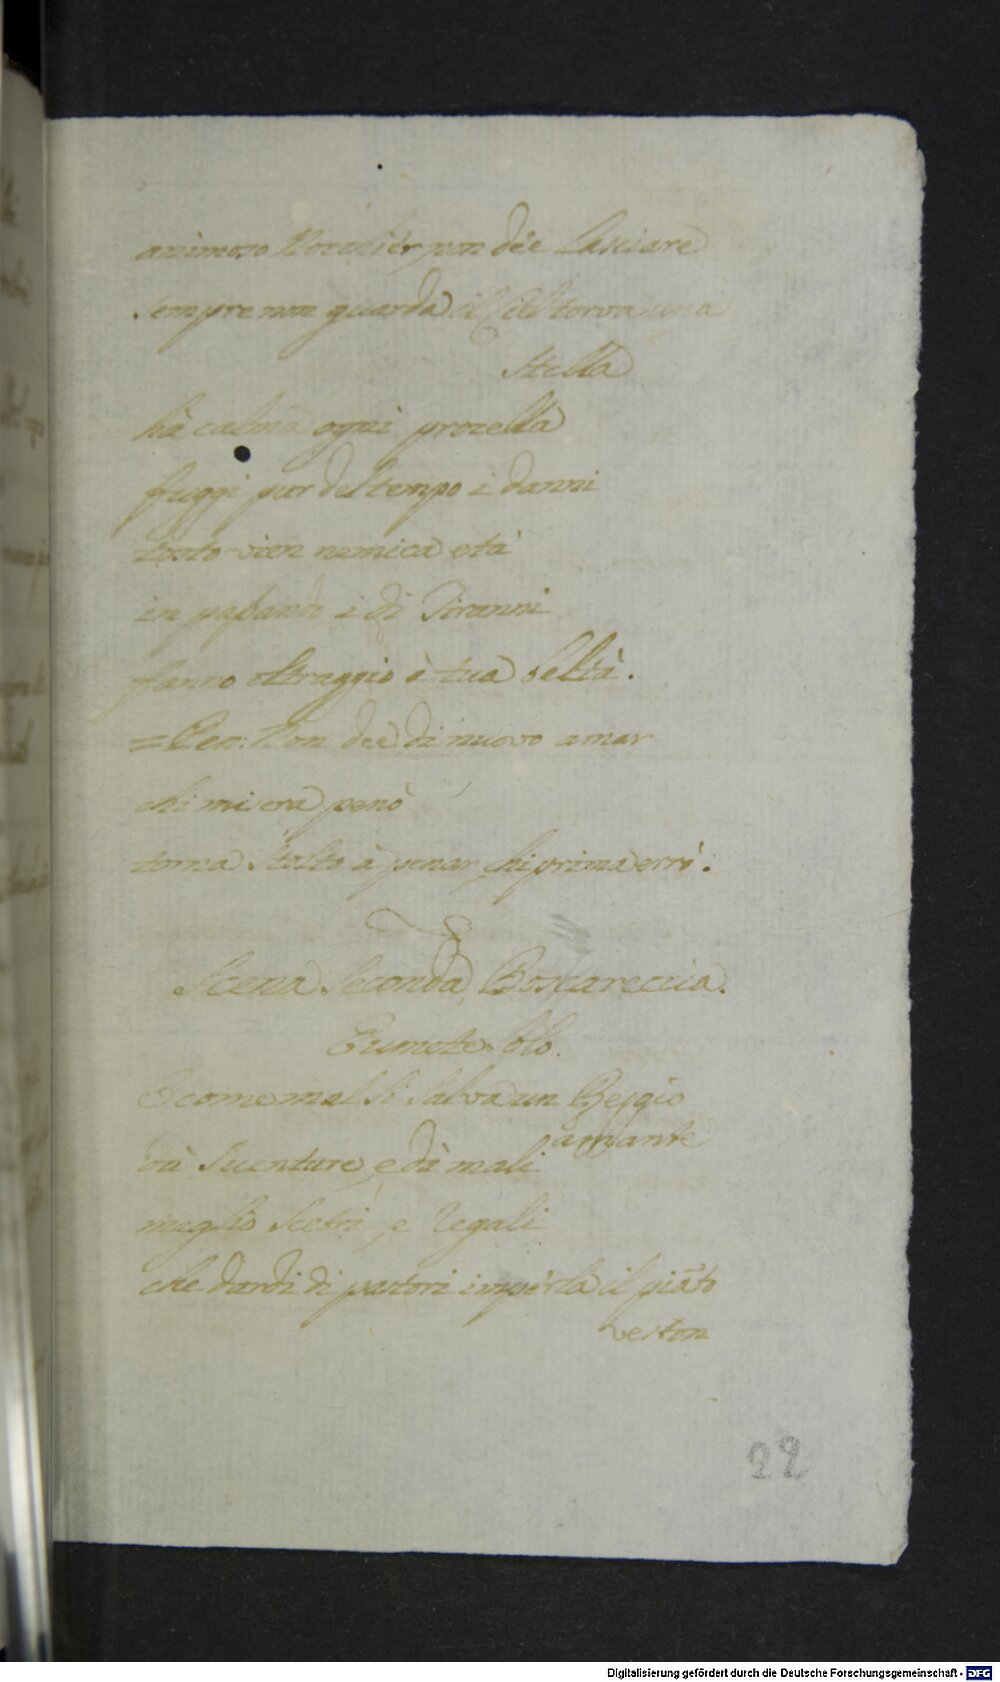 animoso Nocchier, non dèe lasciare
sempre non guarda il Ciel torva una
stella
hà calma ogni procella
fuggi pur del tempo i danni
tosto vien nemica età
in passando i dì Tiranni
fanno oltraggio à tua beltà.
= Non deè di nuovo amar
chi misera penò
torna stolto à penar, chi prima errò.
Scena Seconda, Boscareccia.
Eumete solo.
O come mal si salva un Reggio
amante
dà sventure, e dà mali
meglio scetri, e regali
che dardi di pastori imperla il piãto
veston
22
Digitalisierung gefördert durch die Deutsche Forschungsgemeinschaft - DFG